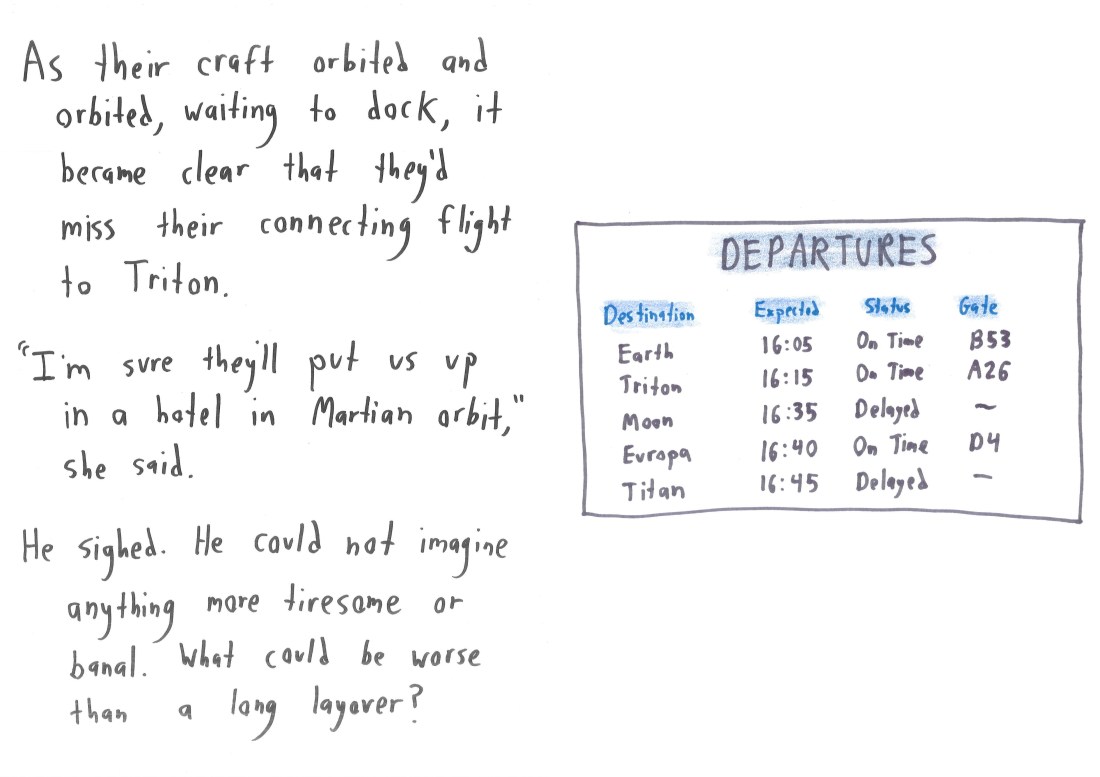 As their craft orbited and
orbited, waiting to dock, it
became clear that they'd
miss their connecting flight
to Triton.
"I'm sure they'll put us up
in a hotel in Martian orbit,"
she said.
He sighed. He could not imagine
anything more tiresome or
banal. What could be worse
than a long layover?
DEPARTURES
Destination Expected Status Gate
Earth 16:05 On Time B53
Triton 16:15 On Time A26
Moon 16:35 Delayed ~
Europa 16:40 On Time D4
Titan 16:45 Delayed —